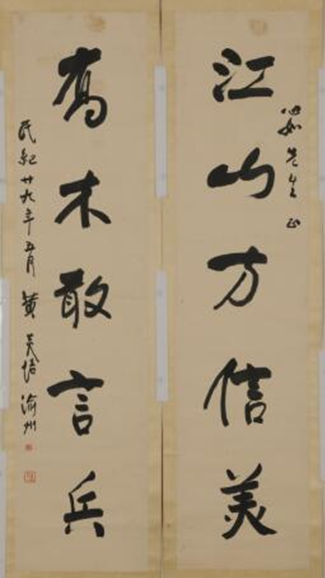 江山方信美
先生正
喬木敢言兵
民紀廿九年五月 黄炎培 渝州